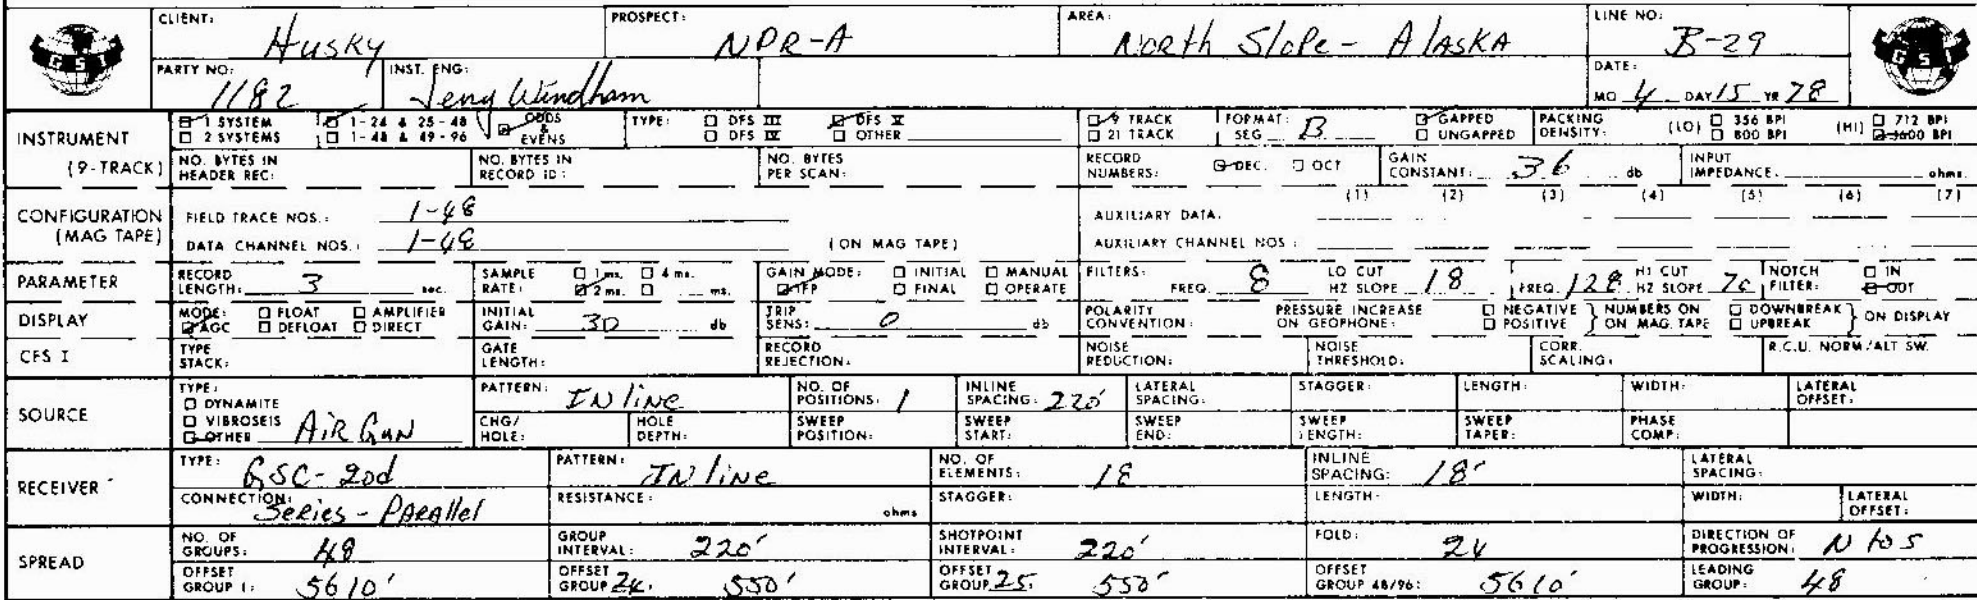 CLIENT: Husky PROSPECT: NPR-A AREA: North Slope - Alaska LINE NO: B-29
GSI GSI
PARTY NO: 1182 INST. ENG: Windham DATE: MO 4 DAY 15 YR 78
INSTRUMENT (9-TRACK) 1 SYSTEM 1-24 & 25-48 ODDS & EVENS TYPE: DFS III DFS V 9 TRACK FORMAT: SEG B GAPPED PACKING DENSITY: (LO) 356 BPI (HI) 712 BPI
2 SYSTEMS 1-48 & 49-96 DFS IV OTHER 21 TRACK UNGAPPED 800 BPI 1600 BPI
NO. BYTES IN HEADER REC: NO. BYTES IN RECORD ID: NO. BYTES PER SCAN: RECORD NUMBERS: DEC. OCT GAIN CONSTANT: 36 db INPUT IMPEDANCE. ohms.
CONFIGURATION (MAG TAPE) FIELD TRACE NOS.: 1-48 AUXILIARY DATA. (1) (2) (3) (4) (5) (6) (7)
DATA CHANNEL NOS.: 1-48 (ON MAG TAPE) AUXILIARY CHANNEL NOS:
PARAMETER RECORD LENGTH: 3 sec. SAMPLE RATE: 1 ms. 4 ms. 2 ms. ms. GAIN MODE: INITIAL MANUAL IFP FINAL OPERATE FILTERS: FREQ. 8 LO CUT HZ SLOPE 18 FREQ. 128 HI CUT HZ SLOPE 70 NOTCH FILTER: IN OUT
DISPLAY MODE: FLOAT AMPLIFIER AGC DEFLOAT DIRECT INITIAL GAIN: 30 db TRIP SENS: 0 db POLARITY CONVENTION: PRESSURE INCREASE ON GEOPHONE: NEGATIVE POSITIVE } NUMBERS ON ON MAG. TAPE DOWNBREAK UPBREAK } ON DISPLAY
CFS I TYPE STACK: GATE LENGTH: RECORD REJECTION: NOISE REDUCTION: NOISE THRESHOLD: CORR. SCALING: R.C.U. NORM/ALT SW.
SOURCE TYPE: DYNAMITE VIBROSEIS OTHER Air Gun PATTERN: INline NO. OF POSITIONS: 1 INLINE SPACING: 220' LATERAL SPACING: STAGGER: LENGTH: WIDTH: LATERAL OFFSET:
CHG/HOLE: HOLE DEPTH: SWEEP POSITION: SWEEP START: SWEEP END: SWEEP LENGTH: SWEEP TAPER: PHASE COMP:
RECEIVER TYPE: GSC-20d PATTERN: INline NO. OF ELEMENTS: 18 INLINE SPACING: 18' LATERAL SPACING:
CONNECTION: Series - Parallel RESISTANCE: ohms STAGGER: LENGTH: WIDTH: LATERAL OFFSET:
SPREAD NO. OF GROUPS: 48 GROUP INTERVAL: 220' SHOTPOINT INTERVAL: 220' FOLD: 24 DIRECTION OF PROGRESSION: N to S
OFFSET GROUP 1: 5610' OFFSET GROUP 24: 550' OFFSET GROUP 25: 550' OFFSET GROUP 48/96: 5610' LEADING GROUP: 48